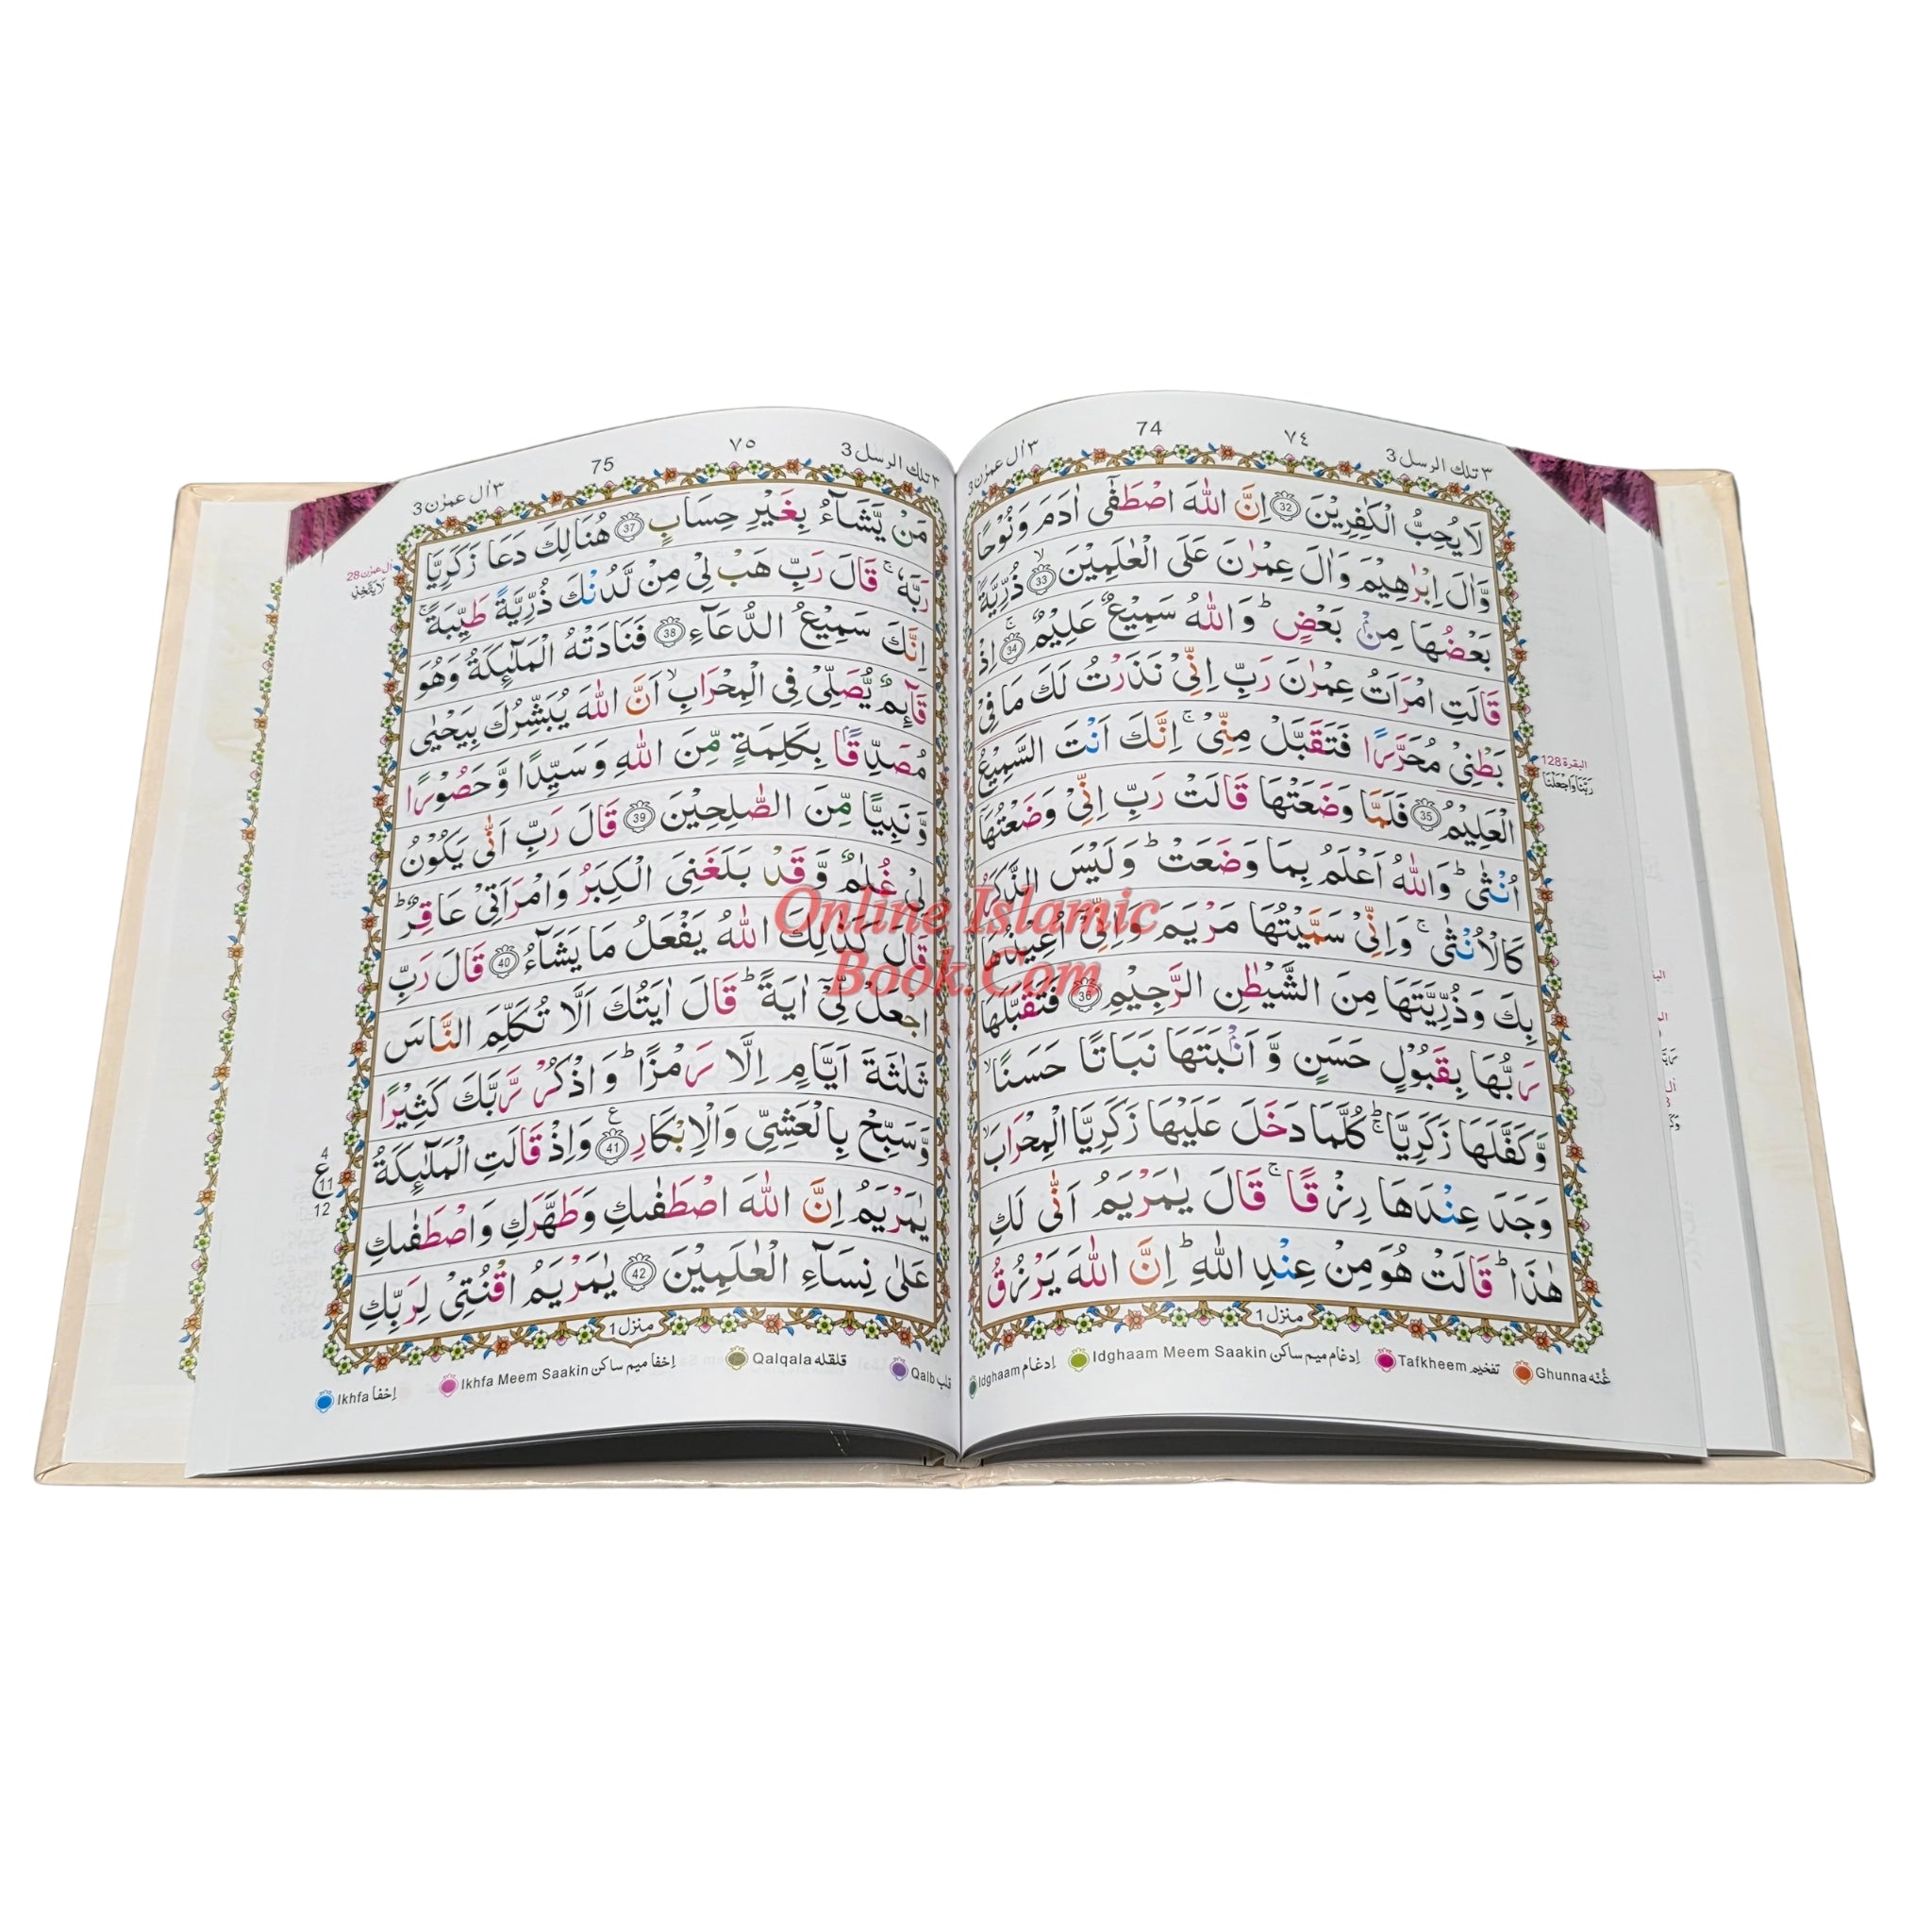 ٣ تلك الرسل 3
٧٤
74
٣ اٰل عمرٰن 3
لَا يُحِبُّ الْكٰفِرِيْنَ 32 اِنَّ اللّٰهَ اصْطَفٰٓى اٰدَمَ وَنُوْحًا
وَّاٰلَ اِبْرٰهِيْمَ وَاٰلَ عِمْرٰنَ عَلَى الْعٰلَمِيْنَ ۙ 33 ذُرِّيَّةًۢ
بَعْضُهَا مِنْۢ بَعْضٍ ؕ وَاللّٰهُ سَمِيْعٌ عَلِيْمٌ ۚ 34 اِذْ
قَالَتِ امْرَاَتُ عِمْرٰنَ رَبِّ اِنِّىْ نَذَرْتُ لَكَ مَا فِىْ
بَطْنِىْ مُحَرَّرًا فَتَقَبَّلْ مِنِّىْ ۚ اِنَّكَ اَنْتَ السَّمِيْعُ
الْعَلِيْمُ 35 فَلَمَّا وَضَعَتْهَا قَالَتْ رَبِّ اِنِّىْ وَضَعْتُهَا
اُنْثٰى ؕ وَاللّٰهُ اَعْلَمُ بِمَا وَضَعَتْ ؕ وَلَيْسَ الذَّكَرُ
كَالْاُنْثٰى ۚ وَاِنِّىْ سَمَّيْتُهَا مَرْيَمَ وَاِنِّىْ اُعِيْذُهَا
بِكَ وَذُرِّيَّتَهَا مِنَ الشَّيْطٰنِ الرَّجِيْمِ 36 فَتَقَبَّلَهَا
رَبُّهَا بِقَبُوْلٍ حَسَنٍ وَّاَنْۢبَتَهَا نَبَاتًا حَسَنًا ۙ
وَّكَفَّلَهَا زَكَرِيَّا ؕ ۚ كُلَّمَا دَخَلَ عَلَيْهَا زَكَرِيَّا الْمِحْرَابَ ۙ
وَجَدَ عِنْدَهَا رِزْقًا ۚ قَالَ يٰمَرْيَمُ اَنّٰى لَكِ
هٰذَا ؕ قَالَتْ هُوَ مِنْ عِنْدِ اللّٰهِ ؕ اِنَّ اللّٰهَ يَرْزُقُ
البقرة 128
رَبَّنَا وَاجْعَلْنَا
منزل 1
Idghaam ادغام
Idghaam Meem Saakin ادغام میم ساکن
Tafkheem تفخیم
Ghunna غُنّه
٣ تلك الرسل 3
٧٥
75
٣ اٰل عمرٰن 3
مَنْ يَّشَآءُ بِغَيْرِ حِسَابٍ 37 هُنَالِكَ دَعَا زَكَرِيَّا
رَبَّهٗ ۚ قَالَ رَبِّ هَبْ لِىْ مِنْ لَّدُنْكَ ذُرِّيَّةً طَيِّبَةً ۚ
اِنَّكَ سَمِيْعُ الدُّعَآءِ 38 فَنَادَتْهُ الْمَلٰٓئِكَةُ وَهُوَ
قَآئِمٌ يُّصَلِّىْ فِى الْمِحْرَابِ ۙ اَنَّ اللّٰهَ يُبَشِّرُكَ بِيَحْيٰى
مُصَدِّقًۢا بِكَلِمَةٍ مِّنَ اللّٰهِ وَسَيِّدًا وَّحَصُوْرًا
وَّنَبِيًّا مِّنَ الصّٰلِحِيْنَ 39 قَالَ رَبِّ اَنّٰى يَكُوْنُ
لِىْ غُلٰمٌ وَّقَدْ بَلَغَنِىَ الْكِبَرُ وَامْرَاَتِىْ عَاقِرٌ ؕ
قَالَ كَذٰلِكَ اللّٰهُ يَفْعَلُ مَا يَشَآءُ 40 قَالَ رَبِّ
اجْعَلْ لِّىْٓ اٰيَةً ؕ قَالَ اٰيَتُكَ اَلَّا تُكَلِّمَ النَّاسَ
ثَلٰثَةَ اَيَّامٍ اِلَّا رَمْزًا ؕ وَاذْكُرْ رَّبَّكَ كَثِيْرًا
وَّسَبِّحْ بِالْعَشِىِّ وَالْاِبْكَارِ 41 ع وَاِذْ قَالَتِ الْمَلٰٓئِكَةُ
يٰمَرْيَمُ اِنَّ اللّٰهَ اصْطَفٰىكِ وَطَهَّرَكِ وَاصْطَفٰىكِ
عَلٰى نِسَآءِ الْعٰلَمِيْنَ 42 يٰمَرْيَمُ اقْنُتِىْ لِرَبِّكِ
اٰل عمرٰن 28
لَا يَتَّخِذِ
4
ع
11
12
منزل 1
Ikhfa اخفا
Ikhfa Meem Saakin اخفا میم ساکن
Qalqala قلقله
Qalb قلب
Online Islamic
Book.Com